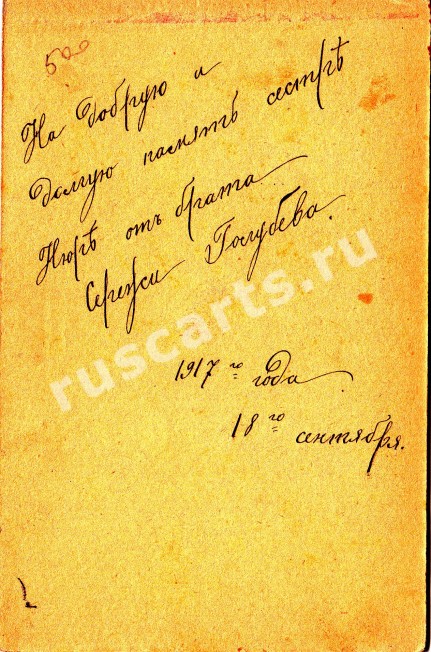 500
На добрую и
долгую память сестрѣ
Нюрѣ отъ брата
Сережи Голубева.
1917го года
18го сентября.
ruscarts.ru